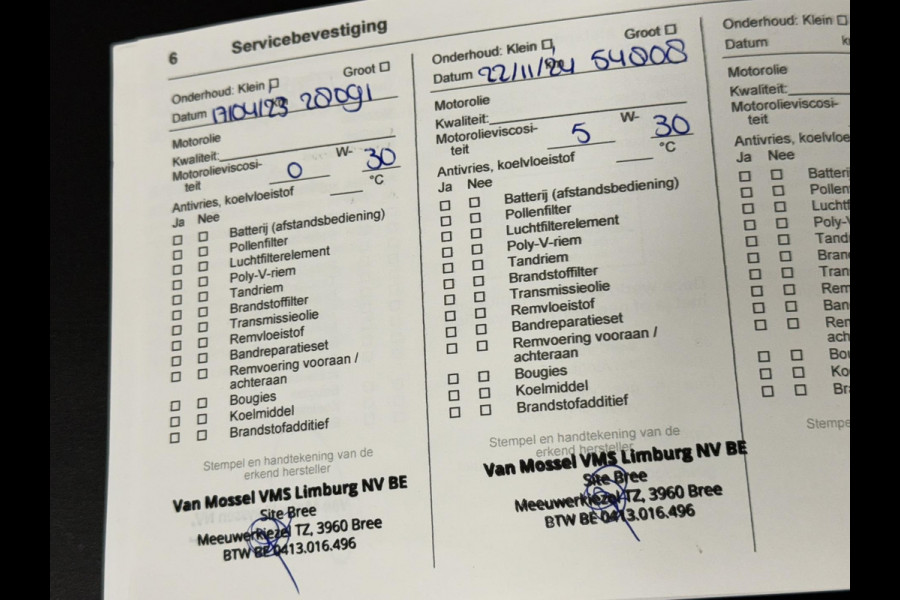 6 Servicebevestiging
Onderhoud: Klein Groot
Datum 17/04/23 28091
Motorolie
Kwaliteit:
Motorolieviscosi-
teit 0 W- 30
Antivries, koelvloeistof °C
Ja Nee
Batterij (afstandsbediening)
Pollenfilter
Luchtfilterelement
Poly-V-riem
Tandriem
Brandstoffilter
Transmissieolie
Remvloeistof
Bandreparatieset
Remvoering vooraan /
achteraan
Bougies
Koelmiddel
Brandstofadditief
Stempel en handtekening van de
erkend hersteller
Van Mossel VMS Limburg NV BE
Site Bree
Meeuwerkiezel TZ, 3960 Bree
BTW BE 0413.016.496
Onderhoud: Klein Groot
Datum 22/11/24 54008
Motorolie
Kwaliteit:
Motorolieviscosi-
teit 5 W- 30
Antivries, koelvloeistof °C
Ja Nee
Batterij (afstandsbediening)
Pollenfilter
Luchtfilterelement
Poly-V-riem
Tandriem
Brandstoffilter
Transmissieolie
Remvloeistof
Bandreparatieset
Remvoering vooraan /
achteraan
Bougies
Koelmiddel
Brandstofadditief
Stempel en handtekening van de
erkend hersteller
Van Mossel VMS Limburg NV BE
Site Bree
Meeuwerkiezel TZ, 3960 Bree
BTW BE 0413.016.496
Onderhoud: Klein
Datum k
Motorolie
Kwaliteit:
Motorolieviscosi-
teit
Antivries, koelvloe
Ja Nee
Batteri
Pollen
Luchtf
Poly-V
Tand
Bran
Tran
Rem
Ban
Rer
ach
Bou
Ko
Br
Stempe